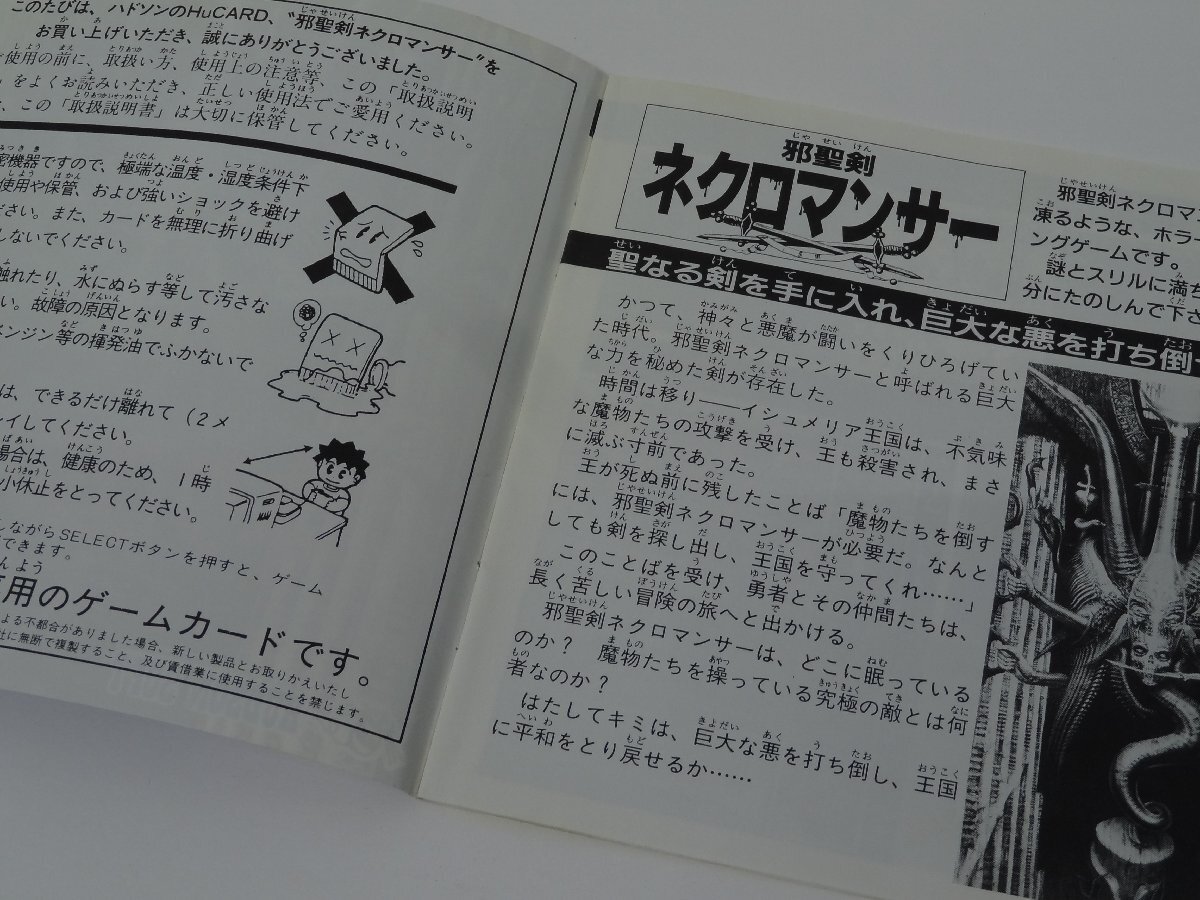 このたびは、ハドソンのHuCARD、"邪聖剣ネクロマンサー"を
お買い上げいただき、誠にありがとうございました。
使用の前に、取扱い方、使用上の注意等、この「取扱説明
」をよくお読みいただき、正しい使用法でご愛用ください。
、この「取扱説明書」は大切に保管してください。
密機器ですので、極端な温度・湿度条件下
使用や保管、および強いショックを避け
ださい。また、カードを無理に折り曲げ
しないでください。
触れたり、水にぬらす等して汚さな
い。故障の原因となります。
ベンジン等の揮発油でふかないで
は、できるだけ離れて（2メ
レイしてください。
場合は、健康のため、1時
小休止をとってください。
しながらSELECTボタンを押すと、ゲーム
できます。
専用のゲームカードです。
よる不都合がありました場合、新しい製品とお取りかえいたし
社に無断で複製すること、及び賃借業に使用することを禁じます。
邪聖剣
ネクロマンサー
邪聖剣ネクロマン
凍るような、ホラー
ングゲームです。
謎とスリルに満ち
分にたのしんで下さ
聖なる剣を手に入れ、巨大な悪を打ち倒
かつて、神々と悪魔が闘いをくりひろげてい
た時代。邪聖剣ネクロマンサーと呼ばれる巨大
な力を秘めた剣が存在した。
時間は移り――イシュメリア王国は、不気味
な魔物たちの攻撃を受け、王も殺害され、まさ
に滅ぶ寸前であった。
王が死ぬ前に残したことば「魔物たちを倒す
には、邪聖剣ネクロマンサーが必要だ。なんと
しても剣を探し出し、王国を守ってくれ……」
このことばを受け、勇者とその仲間たちは、
長く苦しい冒険の旅へと出かける。
邪聖剣ネクロマンサーは、どこに眠っている
のか？　魔物たちを操っている究極の敵とは何
者なのか？
はたしてキミは、巨大な悪を打ち倒し、王国
に平和をとり戻せるか……